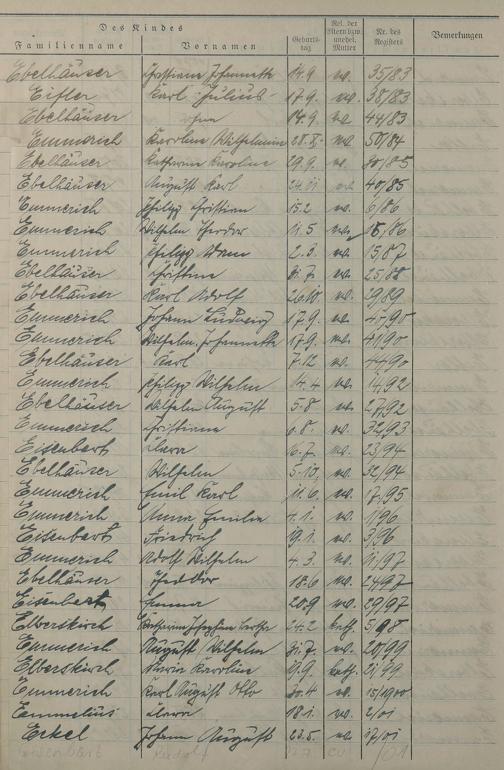 Des Kindes
Familienname Vornamen Geburtstag Rel. der Eltern bzw. unehel. Mutter Nr. des Registers Bemerkungen
Ebelhäuser Christiane Johannette 14.9 ev. 35/83
Eifler Karl Julius 17.9. ev. 38/83
Ebelhäuser ohne 14.9 ev. 44/83
Emmerich Karoline Wilhelmine 28.8. ev. 50/84
Ebelhäuser Katharina Karoline 29.9. ev. /85
Ebelhäuser August Karl ev. 40/85
Emmerich Philipp Christian 15.2 ev. 6/86
Emmerich Wilhelm Theodor 11.5 ev. 18/86
Emmerich Philipp Adam 2.3. ev. 15/87
Ebelhäuser Christine ev. 25/88
Ebelhäuser Karl Adolf 26.10. ev. 29/89
Emmerich Johann Ludwig 17.9. ev. 47/90
Emmerich Wilhelm. Johannette 17.9. ev. 41/90
Ebelhäuser Karl 7.12 ev. 44/90
Emmerich Philipp Wilhelm 14.4 ev. 14/92
Ebelhäuser Wilhelm August 5.8 ev. 27/92
Emmerich Christiane ev. 32/93
Eisenbart Clara 6.7. ev. 23/94
Ebelhäuser Wilhelm 5.10. ev. 32/94
Emmerich Emil Karl 11.6. ev. 17/95
Emmerich Anna Emilie ev. 1/96
Eisenbart Friedrich 19.1. ev. 3/96
Emmerich Adolf Wilhelm 4.3. ev. 11/97
Ebelhäuser Theodor 18.6 ev. 24/97
Eisenbart Emma 20.9 ev. 29/97
Elberskirch Katharina Josephine Bertha 24.2 kath. 5/98
Emmerich August Wilhelm ev. 20/99
Elberskirch Maria Karoline kath. 21/99
Emmerich Karl August Otto 30.4 ev. 15/1900
Emmelius Clara 18.1. ev. 2/01
Eckel Johann August 23.5. ev. 17/01